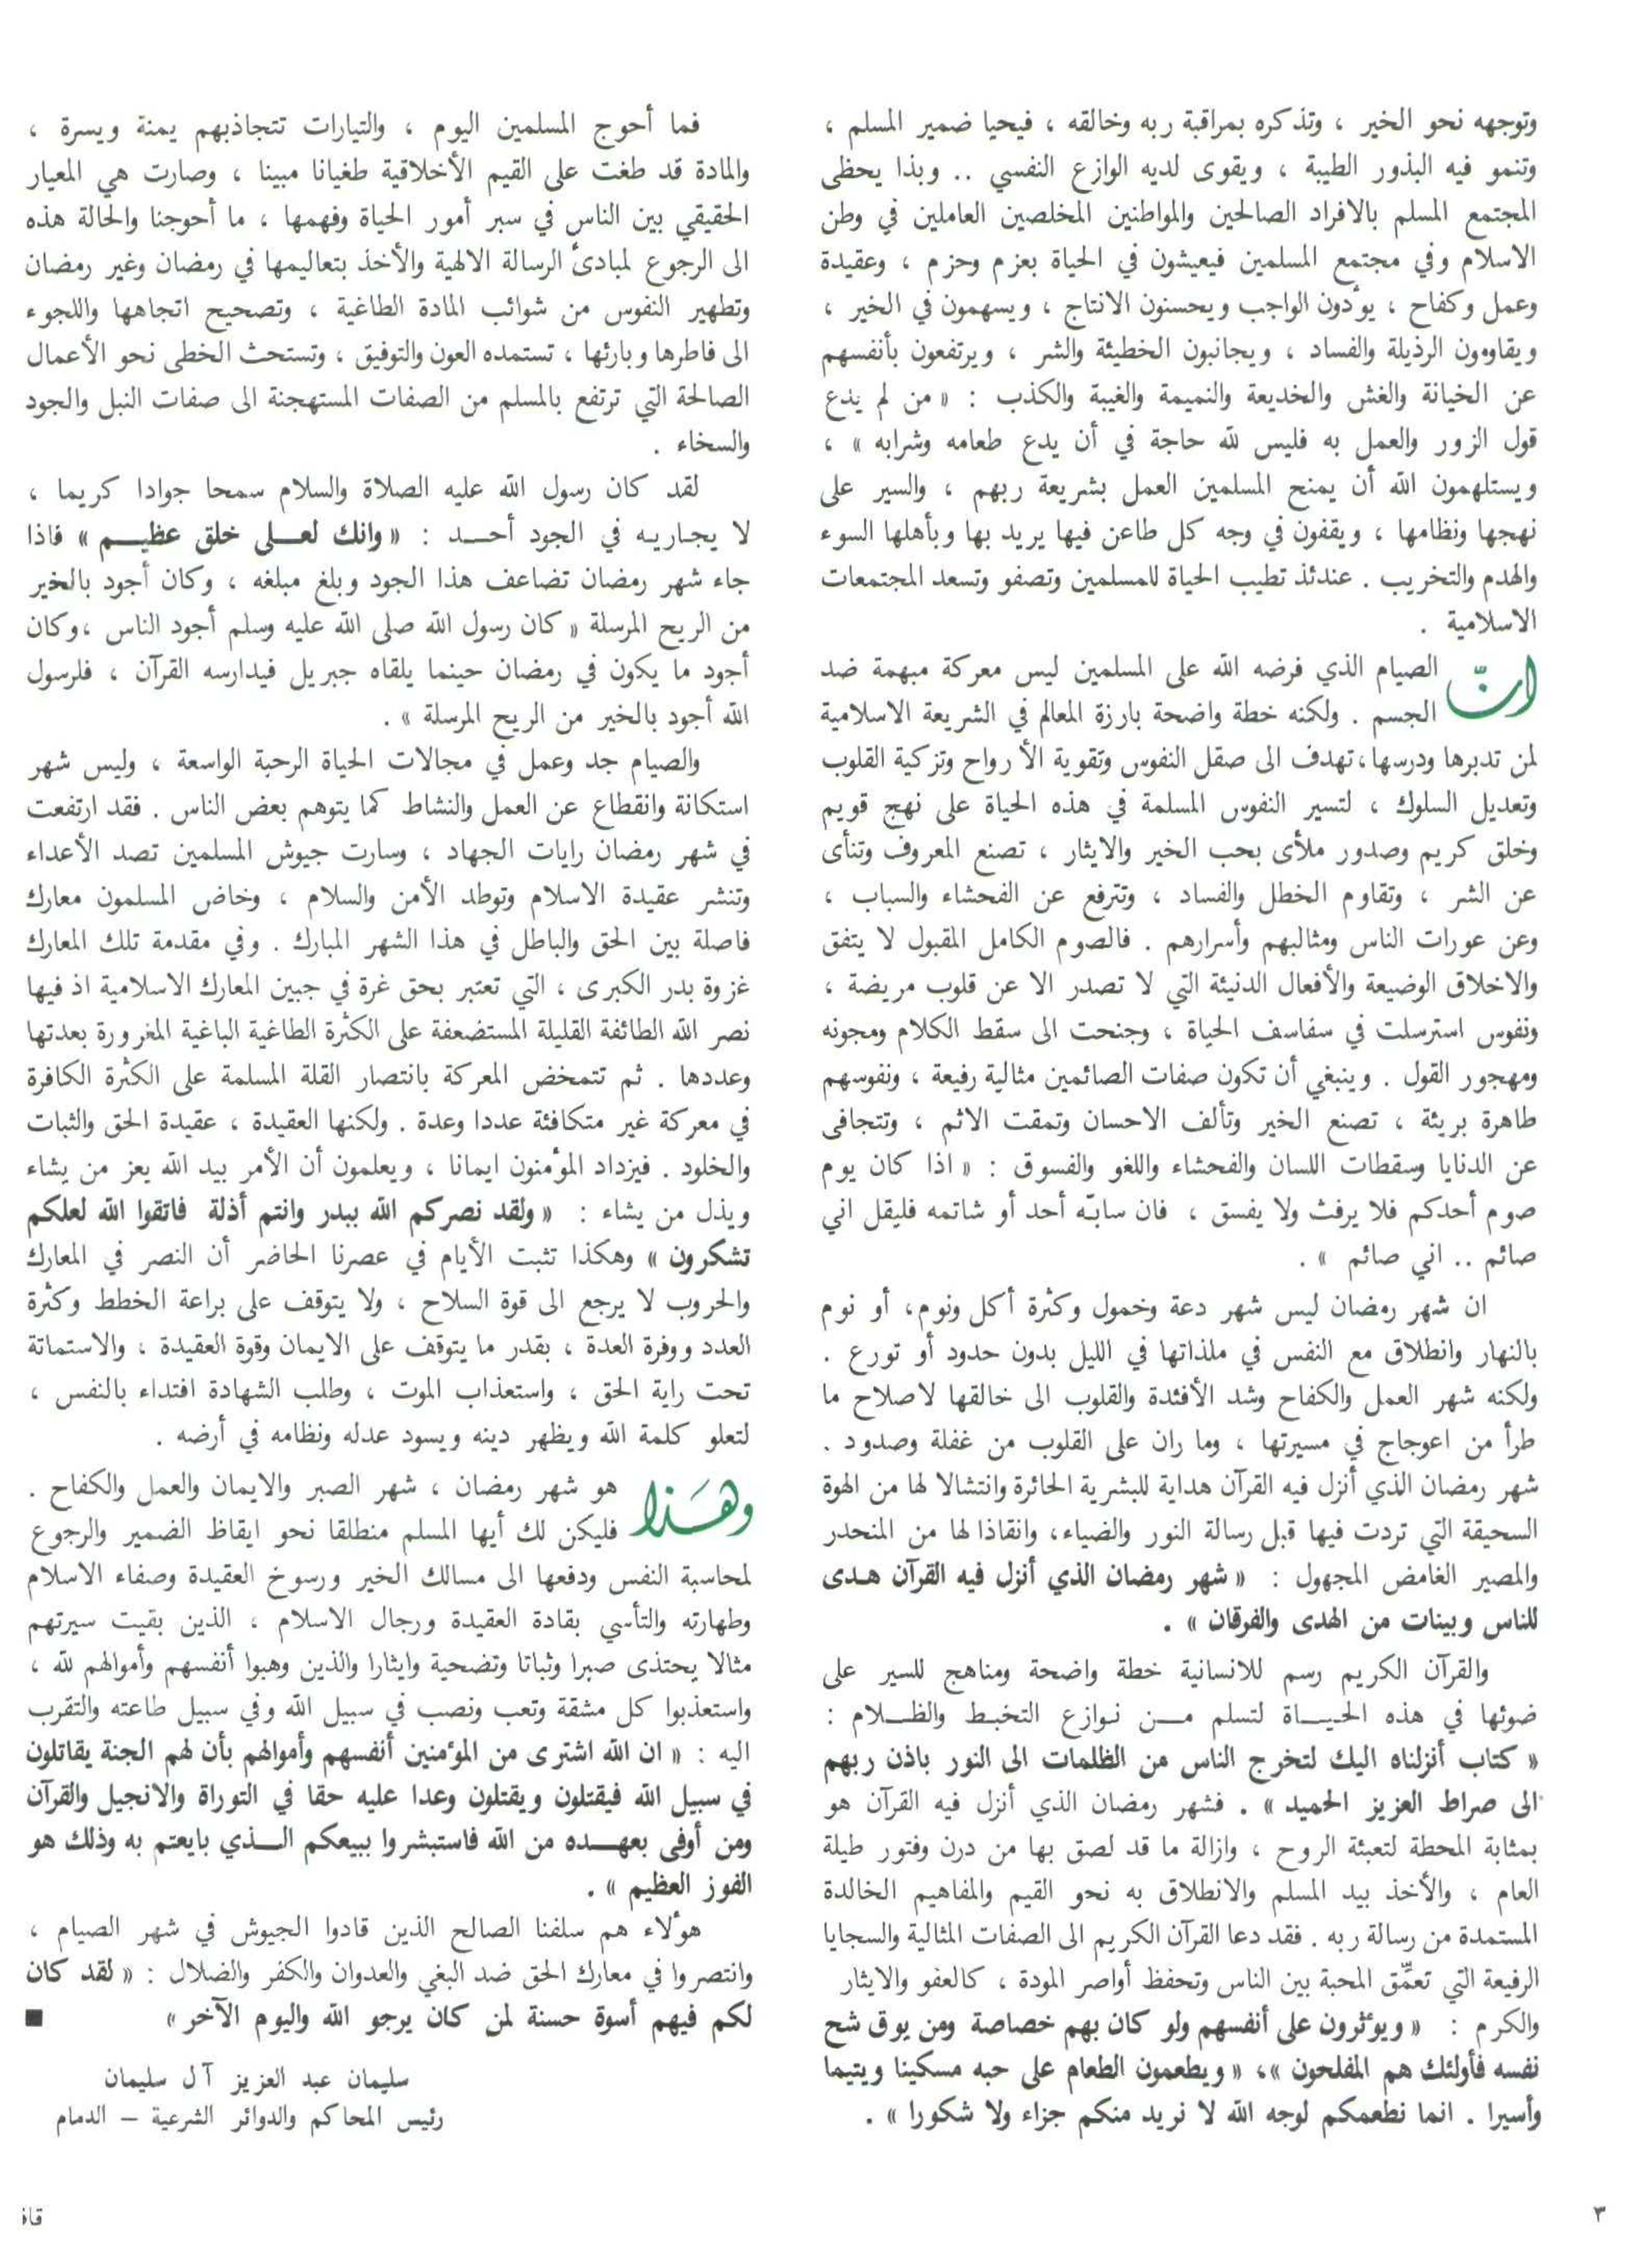 وتوجهه نحو الخير ، وتذكره بمراقبة ربه وخالقه ، فيحيا ضمير المسلم ،
وتنمو فيه البذور الطيبة ، ويقوى لديه الوازع النفسي .. وبذا يحظى
المجتمع المسلم بالافراد الصالحين والمواطنين المخلصين العاملين في وطن
الاسلام وفي مجتمع المسلمين فيعيشون في الحياة بعزم وحزم ، وعقيدة
وعمل وكفاح ، يؤدون الواجب ويحسنون الانتاج ، ويسهمون في الخير ،
ويقاومون الرذيلة والفساد ، ويجانبون الخطيئة والشر ، ويرتفعون بأنفسهم
عن الخيانة والغش والخديعة والنميمة والغيبة والكذب : « من لم يدع
قول الزور والعمل به فليس لله حاجة في أن يدع طعامه وشرابه » ،
ويستلهمون الله أن يمنح المسلمين العمل بشريعة ربهم ، والسير على
نهجها ونظامها ، ويقفون في وجه كل طاعن فيها يريد بها وبأهلها السوء
والهدم والتخريب . عندئذ تطيب الحياة للمسلمين وتصفو وتسعد المجتمعات
الاسلامية .
انّ الصيام الذي فرضه الله على المسلمين ليس معركة مبهمة ضد
الجسم . ولكنه خطة واضحة بارزة المعالم في الشريعة الاسلامية
لمن تدبرها ودرسها، تهدف الى صقل النفوس وتقوية الأرواح وتزكية القلوب
وتعديل السلوك ، لتسير النفوس المسلمة في هذه الحياة على نهج قويم
وخلق كريم وصدور ملأى بحب الخير والايثار ، تصنع المعروف وتنأى
عن الشر ، وتقاوم الخطل والفساد ، وتترفع عن الفحشاء والسباب ،
وعن عورات الناس ومثالبهم وأسرارهم . فالصوم الكامل المقبول لا يتفق
والاخلاق الوضيعة والأفعال الدنيئة التي لا تصدر الا عن قلوب مريضة ،
ونفوس استرسلت في سفاسف الحياة ، وجنحت الى سقط الكلام ومجونه
ومهجور القول . وينبغي أن تكون صفات الصائمين مثالية رفيعة ، ونفوسهم
طاهرة بريئة ، تصنع الخير وتألف الاحسان وتمقت الاثم ، وتتجافى
عن الدنايا وسقطات اللسان والفحشاء واللغو والفسوق : « اذا كان يوم
صوم أحدكم فلا يرفث ولا يفسق ، فان سابّه أحد أو شاتمه فليقل اني
صائم .. اني صائم » .
ان شهر رمضان ليس شهر دعة وخمول وكثرة أكل ونوم، أو نوم
بالنهار وانطلاق مع النفس في ملذاتها في الليل بدون حدود أو تورع .
ولكنه شهر العمل والكفاح وشد الأفئدة والقلوب الى خالقها لاصلاح ما
طرأ من اعوجاج في مسيرتها ، وما ران على القلوب من غفلة وصدود .
شهر رمضان الذي أنزل فيه القرآن هداية للبشرية الحائرة وانتشالا لها من الهوة
السحيقة التي تردت فيها قبل رسالة النور والضياء، وانقاذا لها من المنحدر
والمصير الغامض المجهول : « شهر رمضان الذي أنزل فيه القرآن هدى
للناس وبينات من الهدى والفرقان » .
والقرآن الكريم رسم للانسانية خطة واضحة ومناهج للسير على
ضوئها في هذه الحيــاة لتسلم مــن نوازع التخبط والظــلام :
« كتاب أنزلناه اليك لتخرج الناس من الظلمات الى النور باذن ربهم
الى صراط العزيز الحميد » . فشهر رمضان الذي أنزل فيه القرآن هو
بمثابة المحطة لتعبئة الروح ، وازالة ما قد لصق بها من درن وفتور طيلة
العام ، والأخذ بيد المسلم والانطلاق به نحو القيم والمفاهيم الخالدة
المستمدة من رسالة ربه . فقد دعا القرآن الكريم الى الصفات المثالية والسجايا
الرفيعة التي تعمّق المحبة بين الناس وتحفظ أواصر المودة ، كالعفو والايثار
والكرم : « ويؤثرون على أنفسهم ولو كان بهم خصاصة ومن يوق شح
نفسه فأولئك هم المفلحون »، « ويطعمون الطعام على حبه مسكينا ويتيما
وأسيرا . انما نطعمكم لوجه الله لا نريد منكم جزاء ولا شكورا » .
فما أحوج المسلمين اليوم ، والتيارات تتجاذبهم يمنة ويسرة ،
والمادة قد طغت على القيم الأخلاقية طغيانا مبينا ، وصارت هي المعيار
الحقيقي بين الناس في سبر أمور الحياة وفهمها ، ما أحوجنا والحالة هذه
الى الرجوع لمبادئ الرسالة الالهية والأخذ بتعاليمها في رمضان وغير رمضان
وتطهير النفوس من شوائب المادة الطاغية ، وتصحيح اتجاهها واللجوء
الى فاطرها وبارئها ، تستمده العون والتوفيق ، وتستحث الخطى نحو الأعمال
الصالحة التي ترتفع بالمسلم من الصفات المستهجنة الى صفات النبل والجود
والسخاء .
لقد كان رسول الله عليه الصلاة والسلام سمحا جوادا كريما ،
لا يجاريه في الجود أحــد : « وانك لعــلى خلق عظيــم » فاذا
جاء شهر رمضان تضاعف هذا الجود وبلغ مبلغه ، وكان أجود بالخير
من الريح المرسلة « كان رسول الله صلى الله عليه وسلم أجود الناس ،وكان
أجود ما يكون في رمضان حينما يلقاه جبريل فيدارسه القرآن ، فلرسول
الله أجود بالخير من الريح المرسلة » .
والصيام جد وعمل في مجالات الحياة الرحبة الواسعة ، وليس شهر
استكانة وانقطاع عن العمل والنشاط كما يتوهم بعض الناس . فقد ارتفعت
في شهر رمضان رايات الجهاد ، وسارت جيوش المسلمين تصد الأعداء
وتنشر عقيدة الاسلام وتوطد الأمن والسلام ، وخاض المسلمون معارك
فاصلة بين الحق والباطل في هذا الشهر المبارك . وفي مقدمة تلك المعارك
غزوة بدر الكبرى ، التي تعتبر بحق غرة في جبين المعارك الاسلامية اذ فيها
نصر الله الطائفة القليلة المستضعفة على الكثرة الطاغية الباغية المغرورة بعدتها
وعددها . ثم تتمخض المعركة بانتصار القلة المسلمة على الكثرة الكافرة
في معركة غير متكافئة عددا وعدة . ولكنها العقيدة ، عقيدة الحق والثبات
والخلود . فيزداد المؤمنون ايمانا ، ويعلمون أن الأمر بيد الله يعز من يشاء
ويذل من يشاء : « ولقد نصركم الله ببدر وانتم أذلة فاتقوا الله لعلكم
تشكرون » وهكذا تثبت الأيام في عصرنا الحاضر أن النصر في المعارك
والحروب لا يرجع الى قوة السلاح ، ولا يتوقف على براعة الخطط وكثرة
العدد ووفرة العدة ، بقدر ما يتوقف على الايمان وقوة العقيدة ، والاستماتة
تحت راية الحق ، واستعذاب الموت ، وطلب الشهادة افتداء بالنفس ،
لتعلو كلمة الله ويظهر دينه ويسود عدله ونظامه في أرضه .
وهَذا هو شهر رمضان ، شهر الصبر والايمان والعمل والكفاح .
فليكن لك أيها المسلم منطلقا نحو ايقاظ الضمير والرجوع
لمحاسبة النفس ودفعها الى مسالك الخير ورسوخ العقيدة وصفاء الاسلام
وطهارته والتأسي بقادة العقيدة ورجال الاسلام ، الذين بقيت سيرتهم
مثالا يحتذى صبرا وثباتا وتضحية وايثارا والذين وهبوا أنفسهم وأموالهم لله ،
واستعذبوا كل مشقة وتعب ونصب في سبيل الله وفي سبيل طاعته والتقرب
اليه : « ان الله اشترى من المؤمنين أنفسهم وأموالهم بأن لهم الجنة يقاتلون
في سبيل الله فيقتلون ويقتلون وعدا عليه حقا في التوراة والانجيل والقرآن
ومن أوفى بعهــده من الله فاستبشروا ببيعكم الــذي بايعتم به وذلك هو
الفوز العظيم » .
هؤلاء هم سلفنا الصالح الذين قادوا الجيوش في شهر الصيام ،
وانتصروا في معارك الحق ضد البغي والعدوان والكفر والضلال : « لقد كان
لكم فيهم أسوة حسنة لمن كان يرجو الله واليوم الآخر » ■
سليمان عبد العزيز آل سليمان
رئيس المحاكم والدوائر الشرعية – الدمام
٣